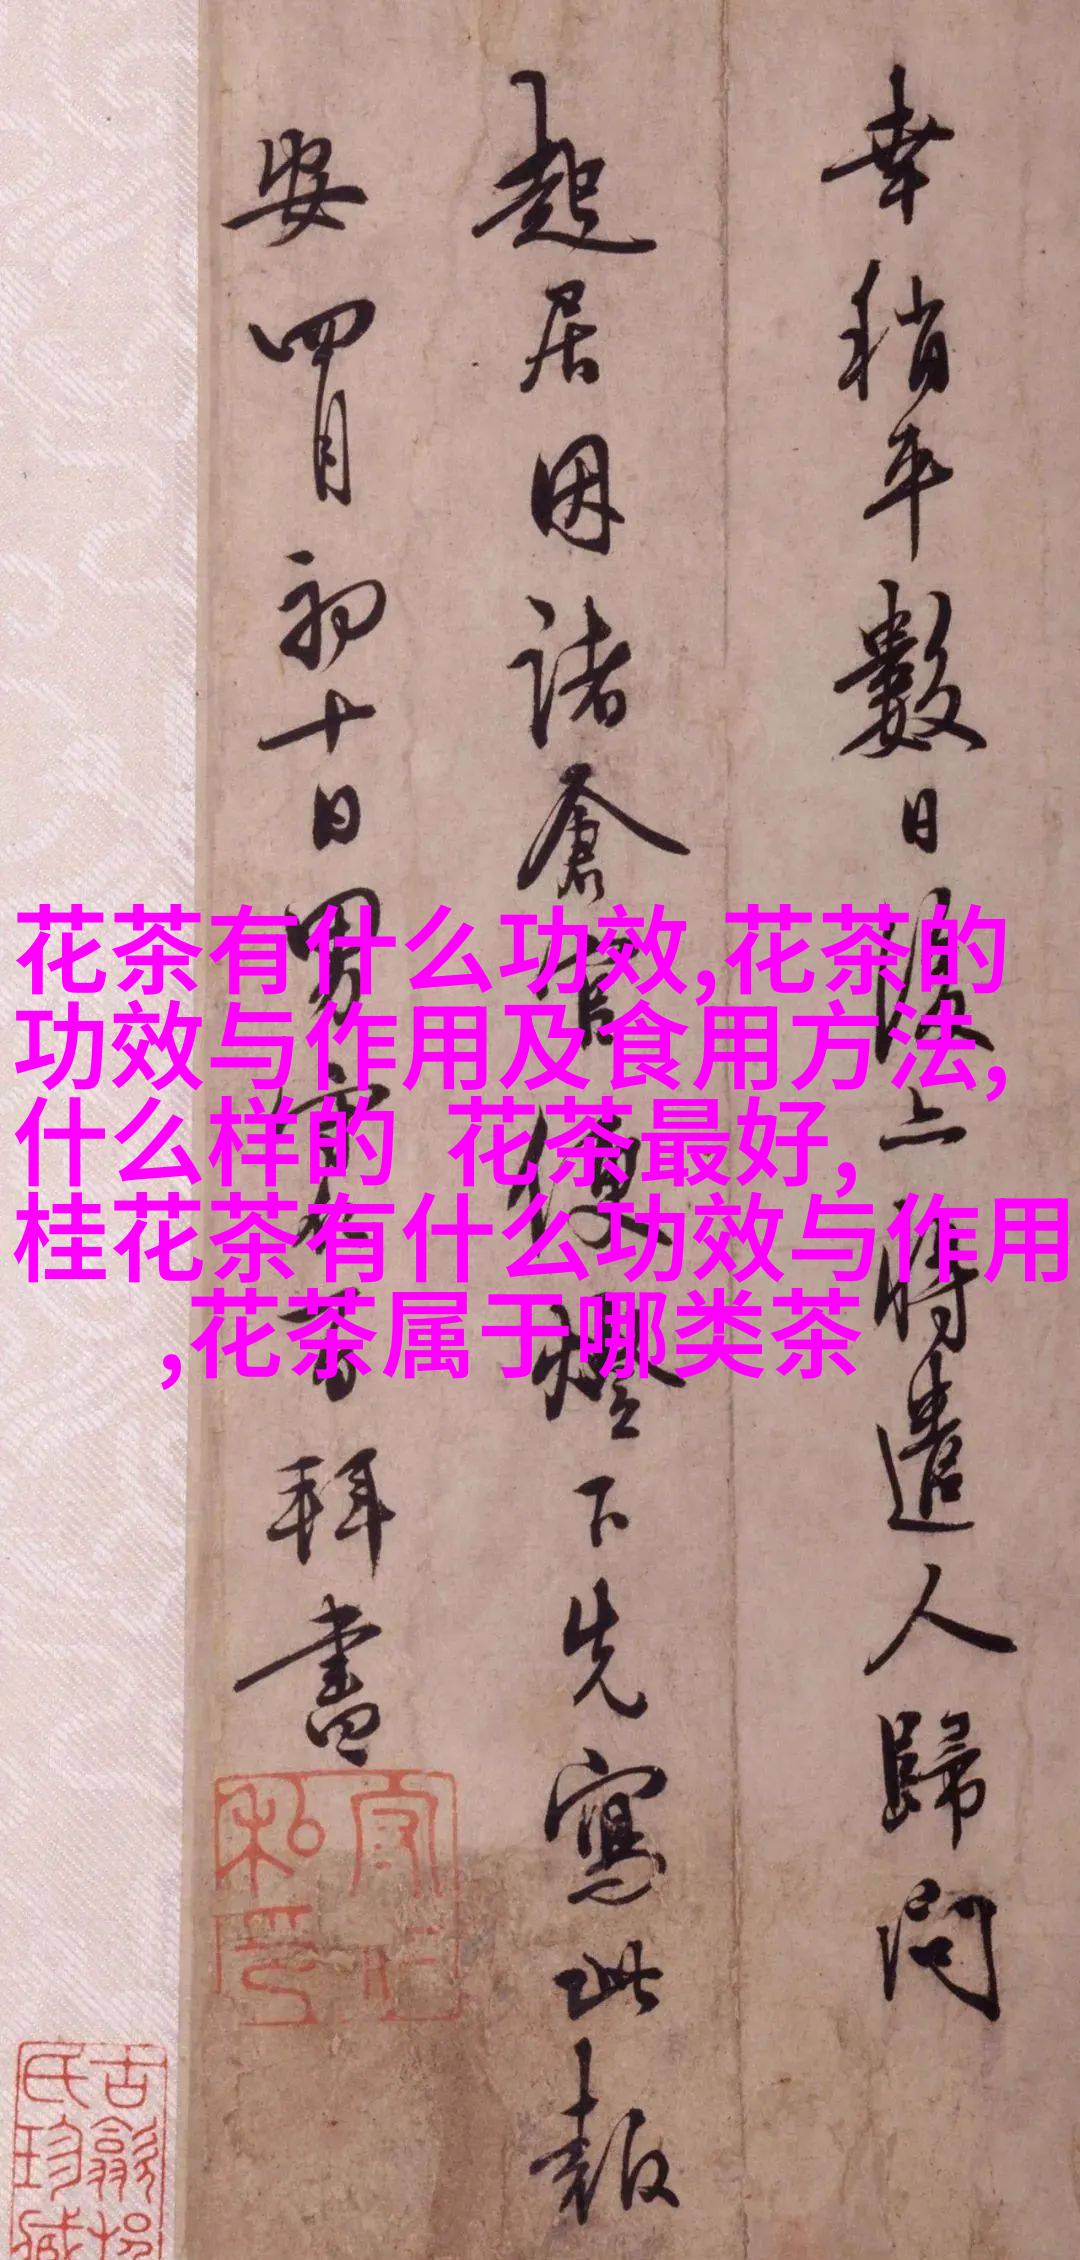 幸稍平數日後上時遣人歸問
起居因諸倉官便燈下先寫此報
安四月初十日男
拜書
花茶有什么功效,花茶的
功效与作用及食用方法,
什么样的 花茶最好,
桂花茶有什么功效与作用
,花茶属于哪类茶